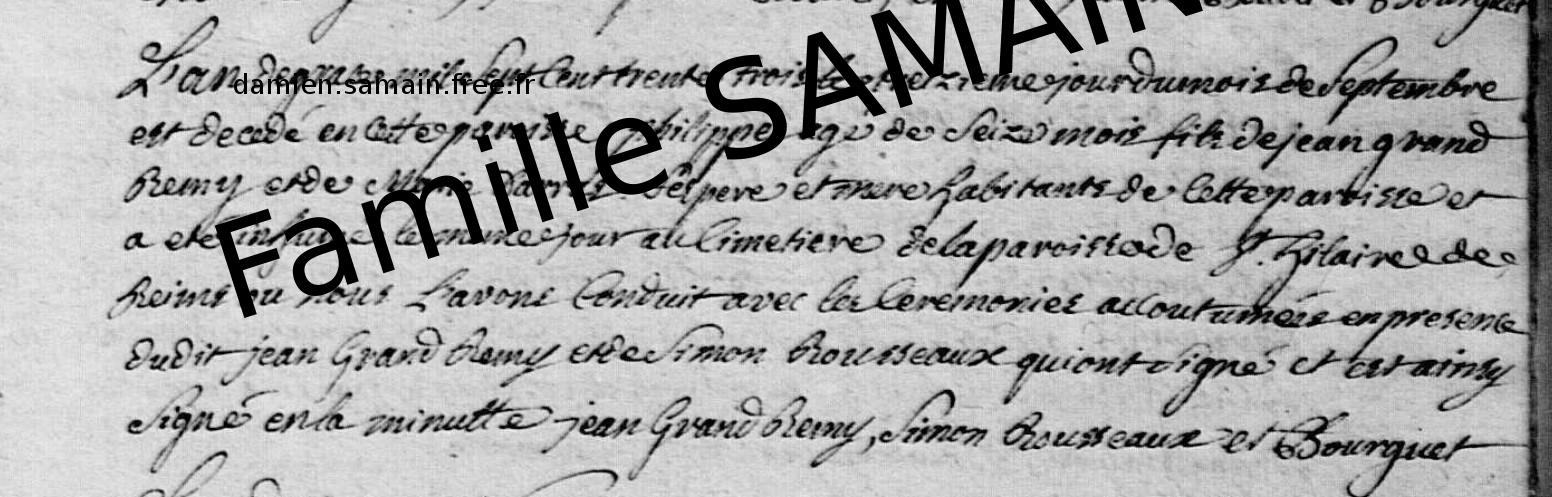 L'an de grace mil sept Cent trente trois le treizieme jour du mois de Septembre
est decedé en Cette paroisse philippe agé de Seize mois fils de jean grand
Remy et de Marie pere et mere habitants de Cette paroisse et
a eté inhumé le meme jour au Cimetiere de la paroisse de St. hilaire de
Reims ou nous L'avons Conduit avec les Ceremonies accoutumées en presence
dudit jean Grand Remy et de Simon Rousseaux qui ont signé et est ainsy
signé en la minutte jean Grand Remy, Simon Rousseaux et Bourguet
damien.samain.free.fr
Famille SAMAIN